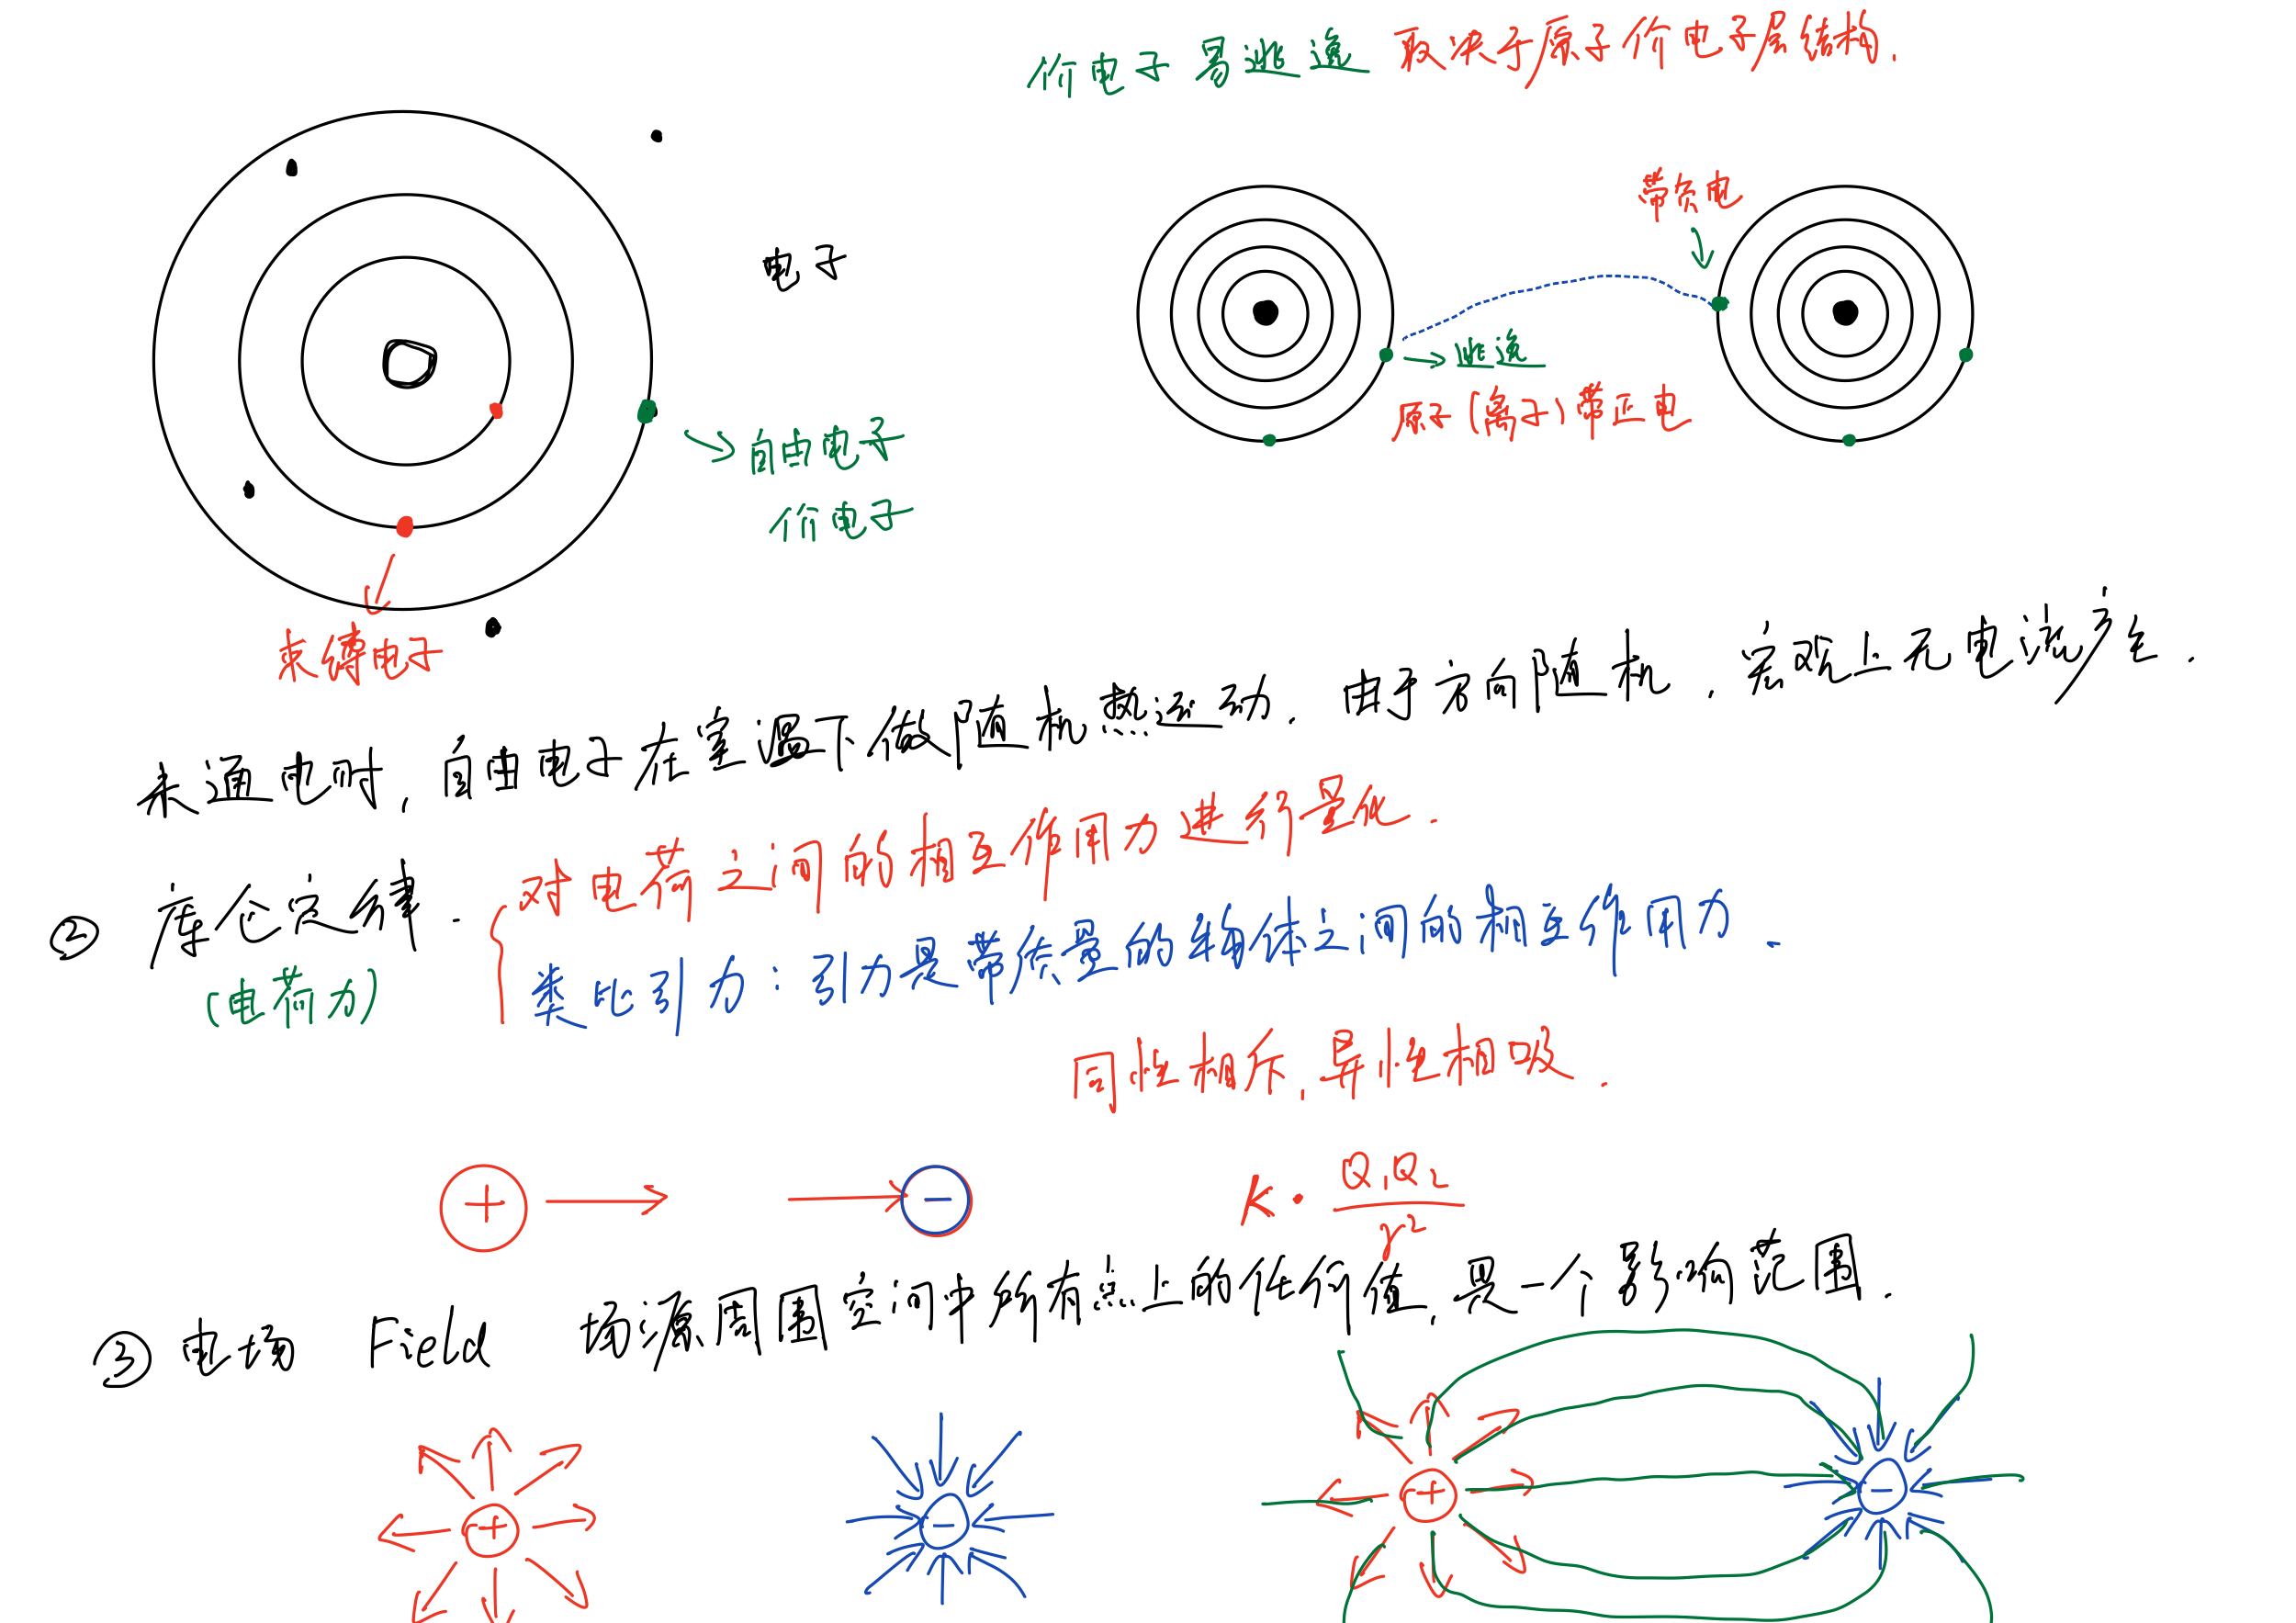 价电子 易逃逸 取决于原子价电子层结构.
带负电
电子
→逃逸
原子(离子)带正电
→自由电子
价电子
束缚电子
未通电时,自由电子在室温下做随机热运动.由于方向随机,宏观上无电流产生.
② 库仑定律. 对电荷之间的相互作用力进行量化.
(电荷力) 类比引力:引力是带质量的物体之间的相互作用力.
同性相斥,异性相吸.
+ → → − K·Q₁Q₂/r²
③ 电场 Field 场源周围空间中所有点上的任何值,是一个影响范围.
+ − + −